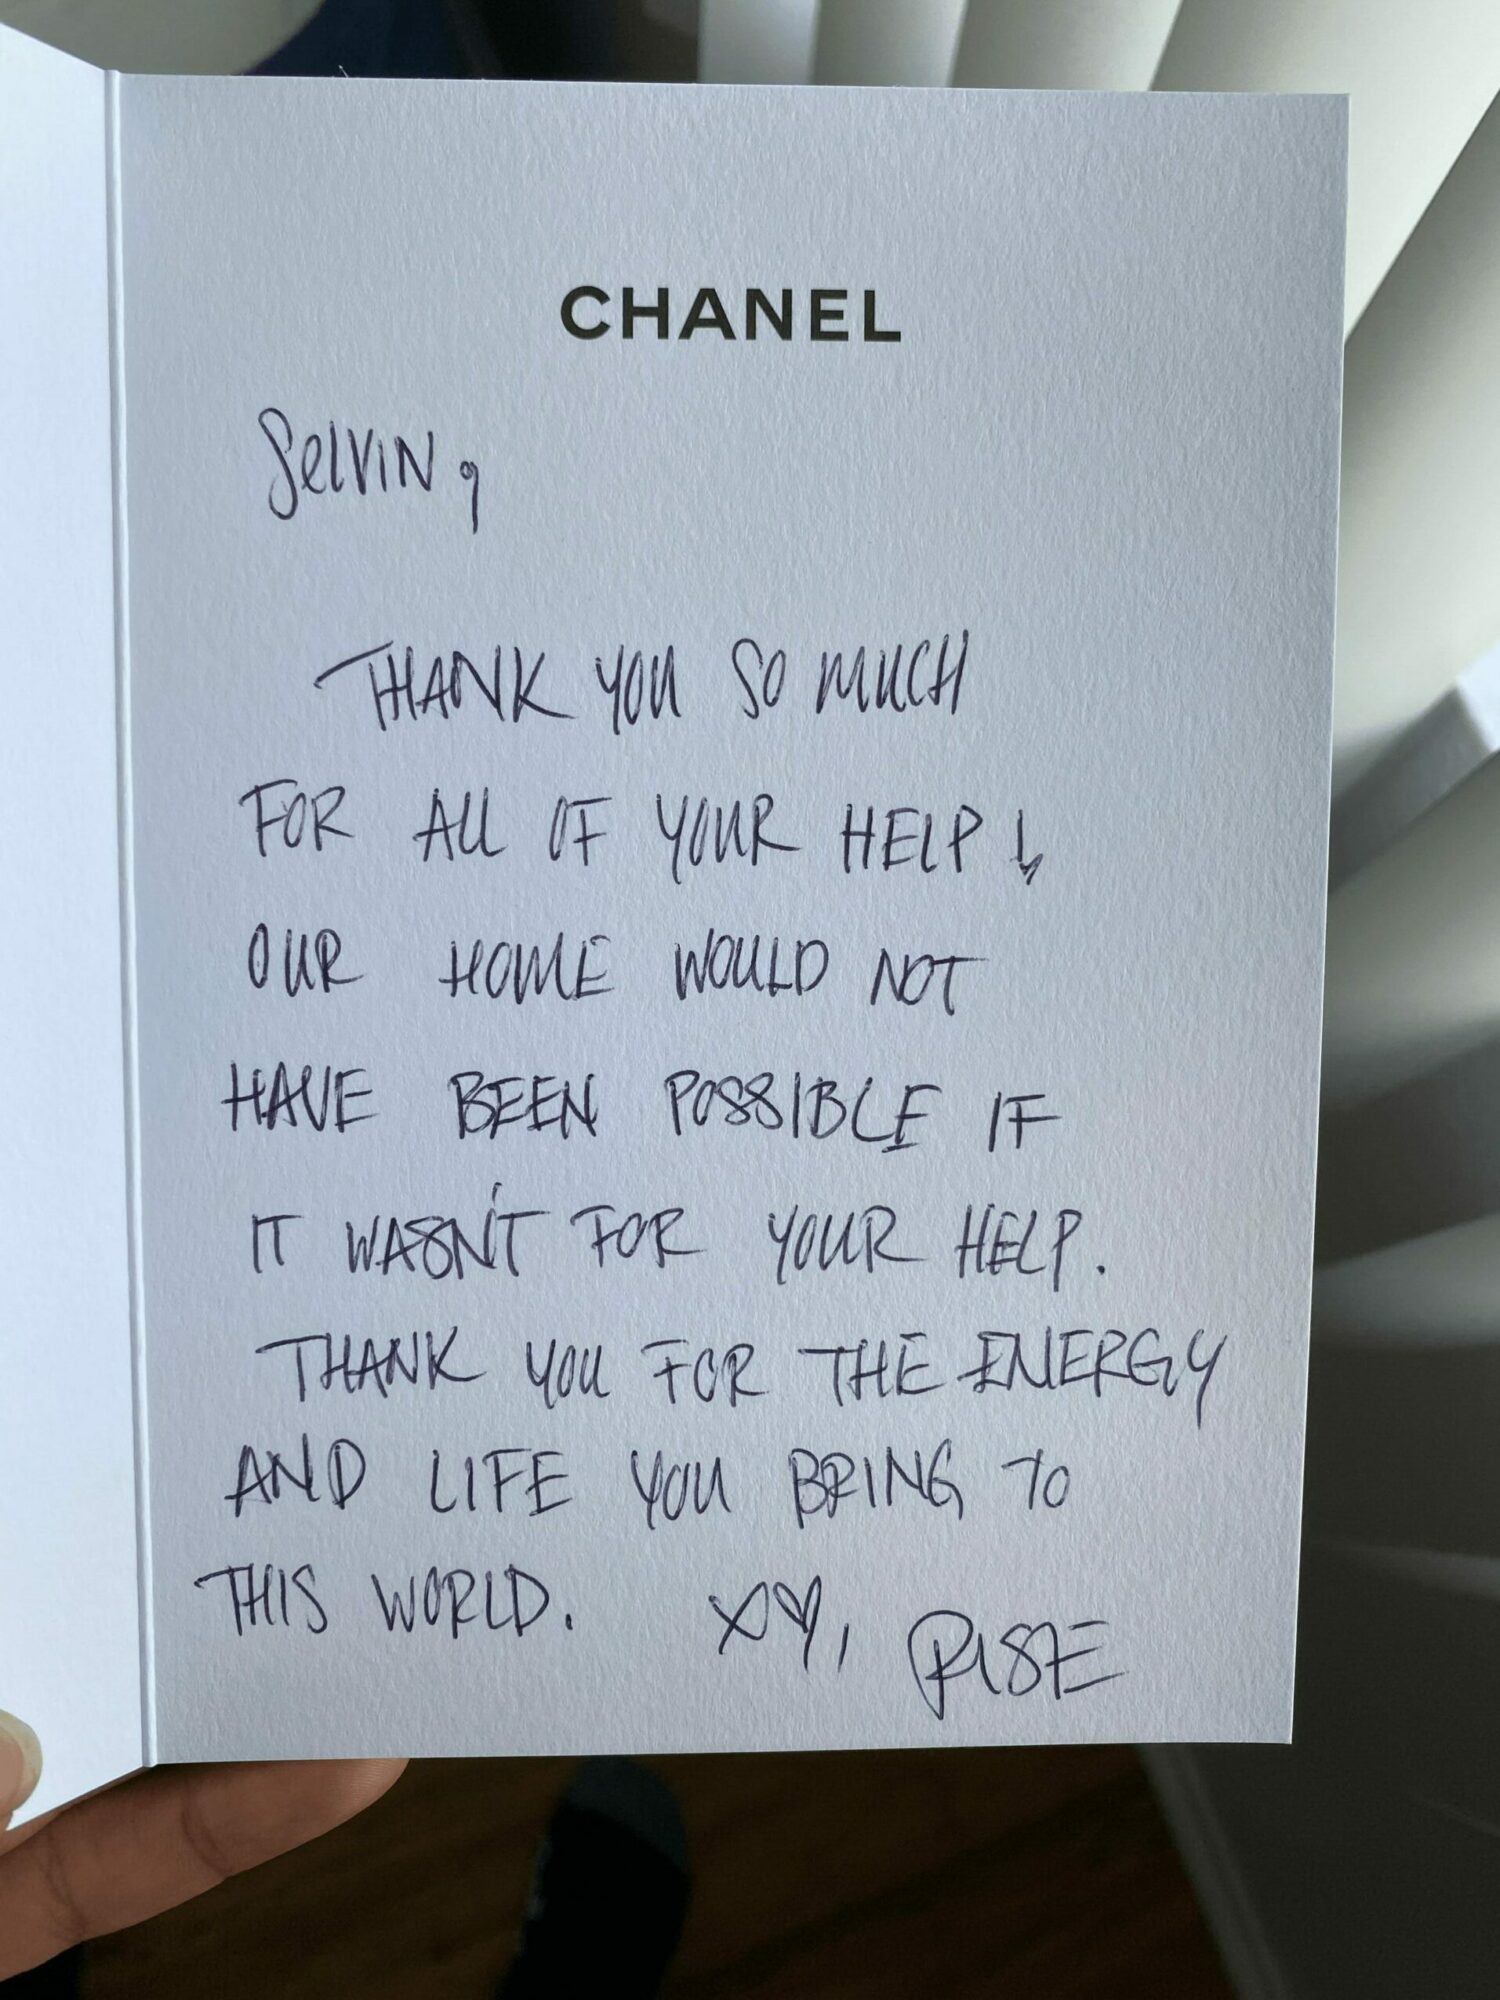 CHANEL
Selvin,
THANK YOU SO MUCH
FOR ALL OF YOUR HELP!
OUR HOME WOULD NOT
HAVE BEEN POSSIBLE IF
IT WASN'T FOR YOUR HELP.
THANK YOU FOR THE ENERGY
AND LIFE YOU BRING TO
THIS WORLD. X♡, RISE